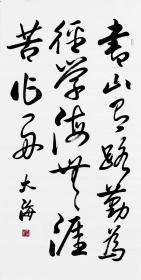 书山有路勤为
径学海无涯
苦作舟
大海